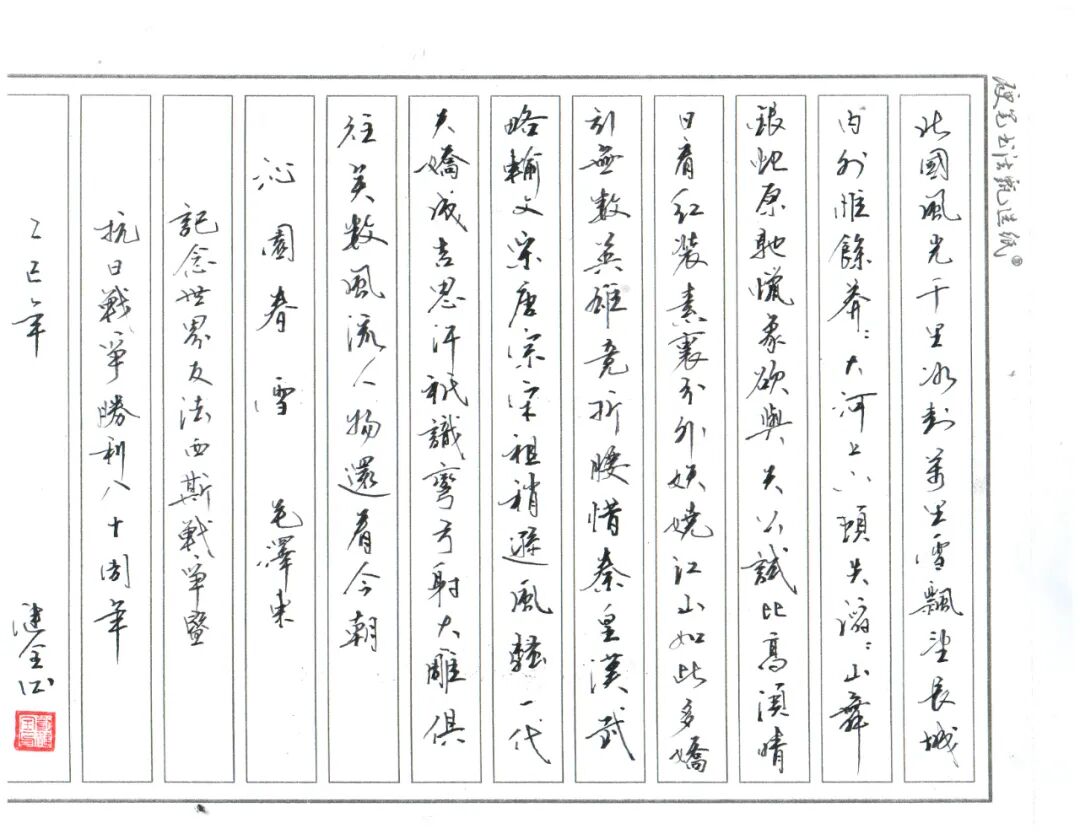 硬笔书法甄选纸
北國風光千里冰封萬里雪飄望長城
内外惟餘莽〻大河上下頓失滔〻山舞
銀蛇原馳蠟象欲與天公試比高須晴
日看紅裝素裹分外妖嬈江山如此多嬌
引無數英雄竟折腰惜秦皇漢武
略輸文采唐宗宋祖稍遜風騷一代
天嬌成吉思汗祇識彎弓射大雕俱
往矣數風流人物還看今朝
沁園春雪 毛澤東
記念世界反法西斯戰爭暨
抗日戰爭勝利八十周年
乙巳年